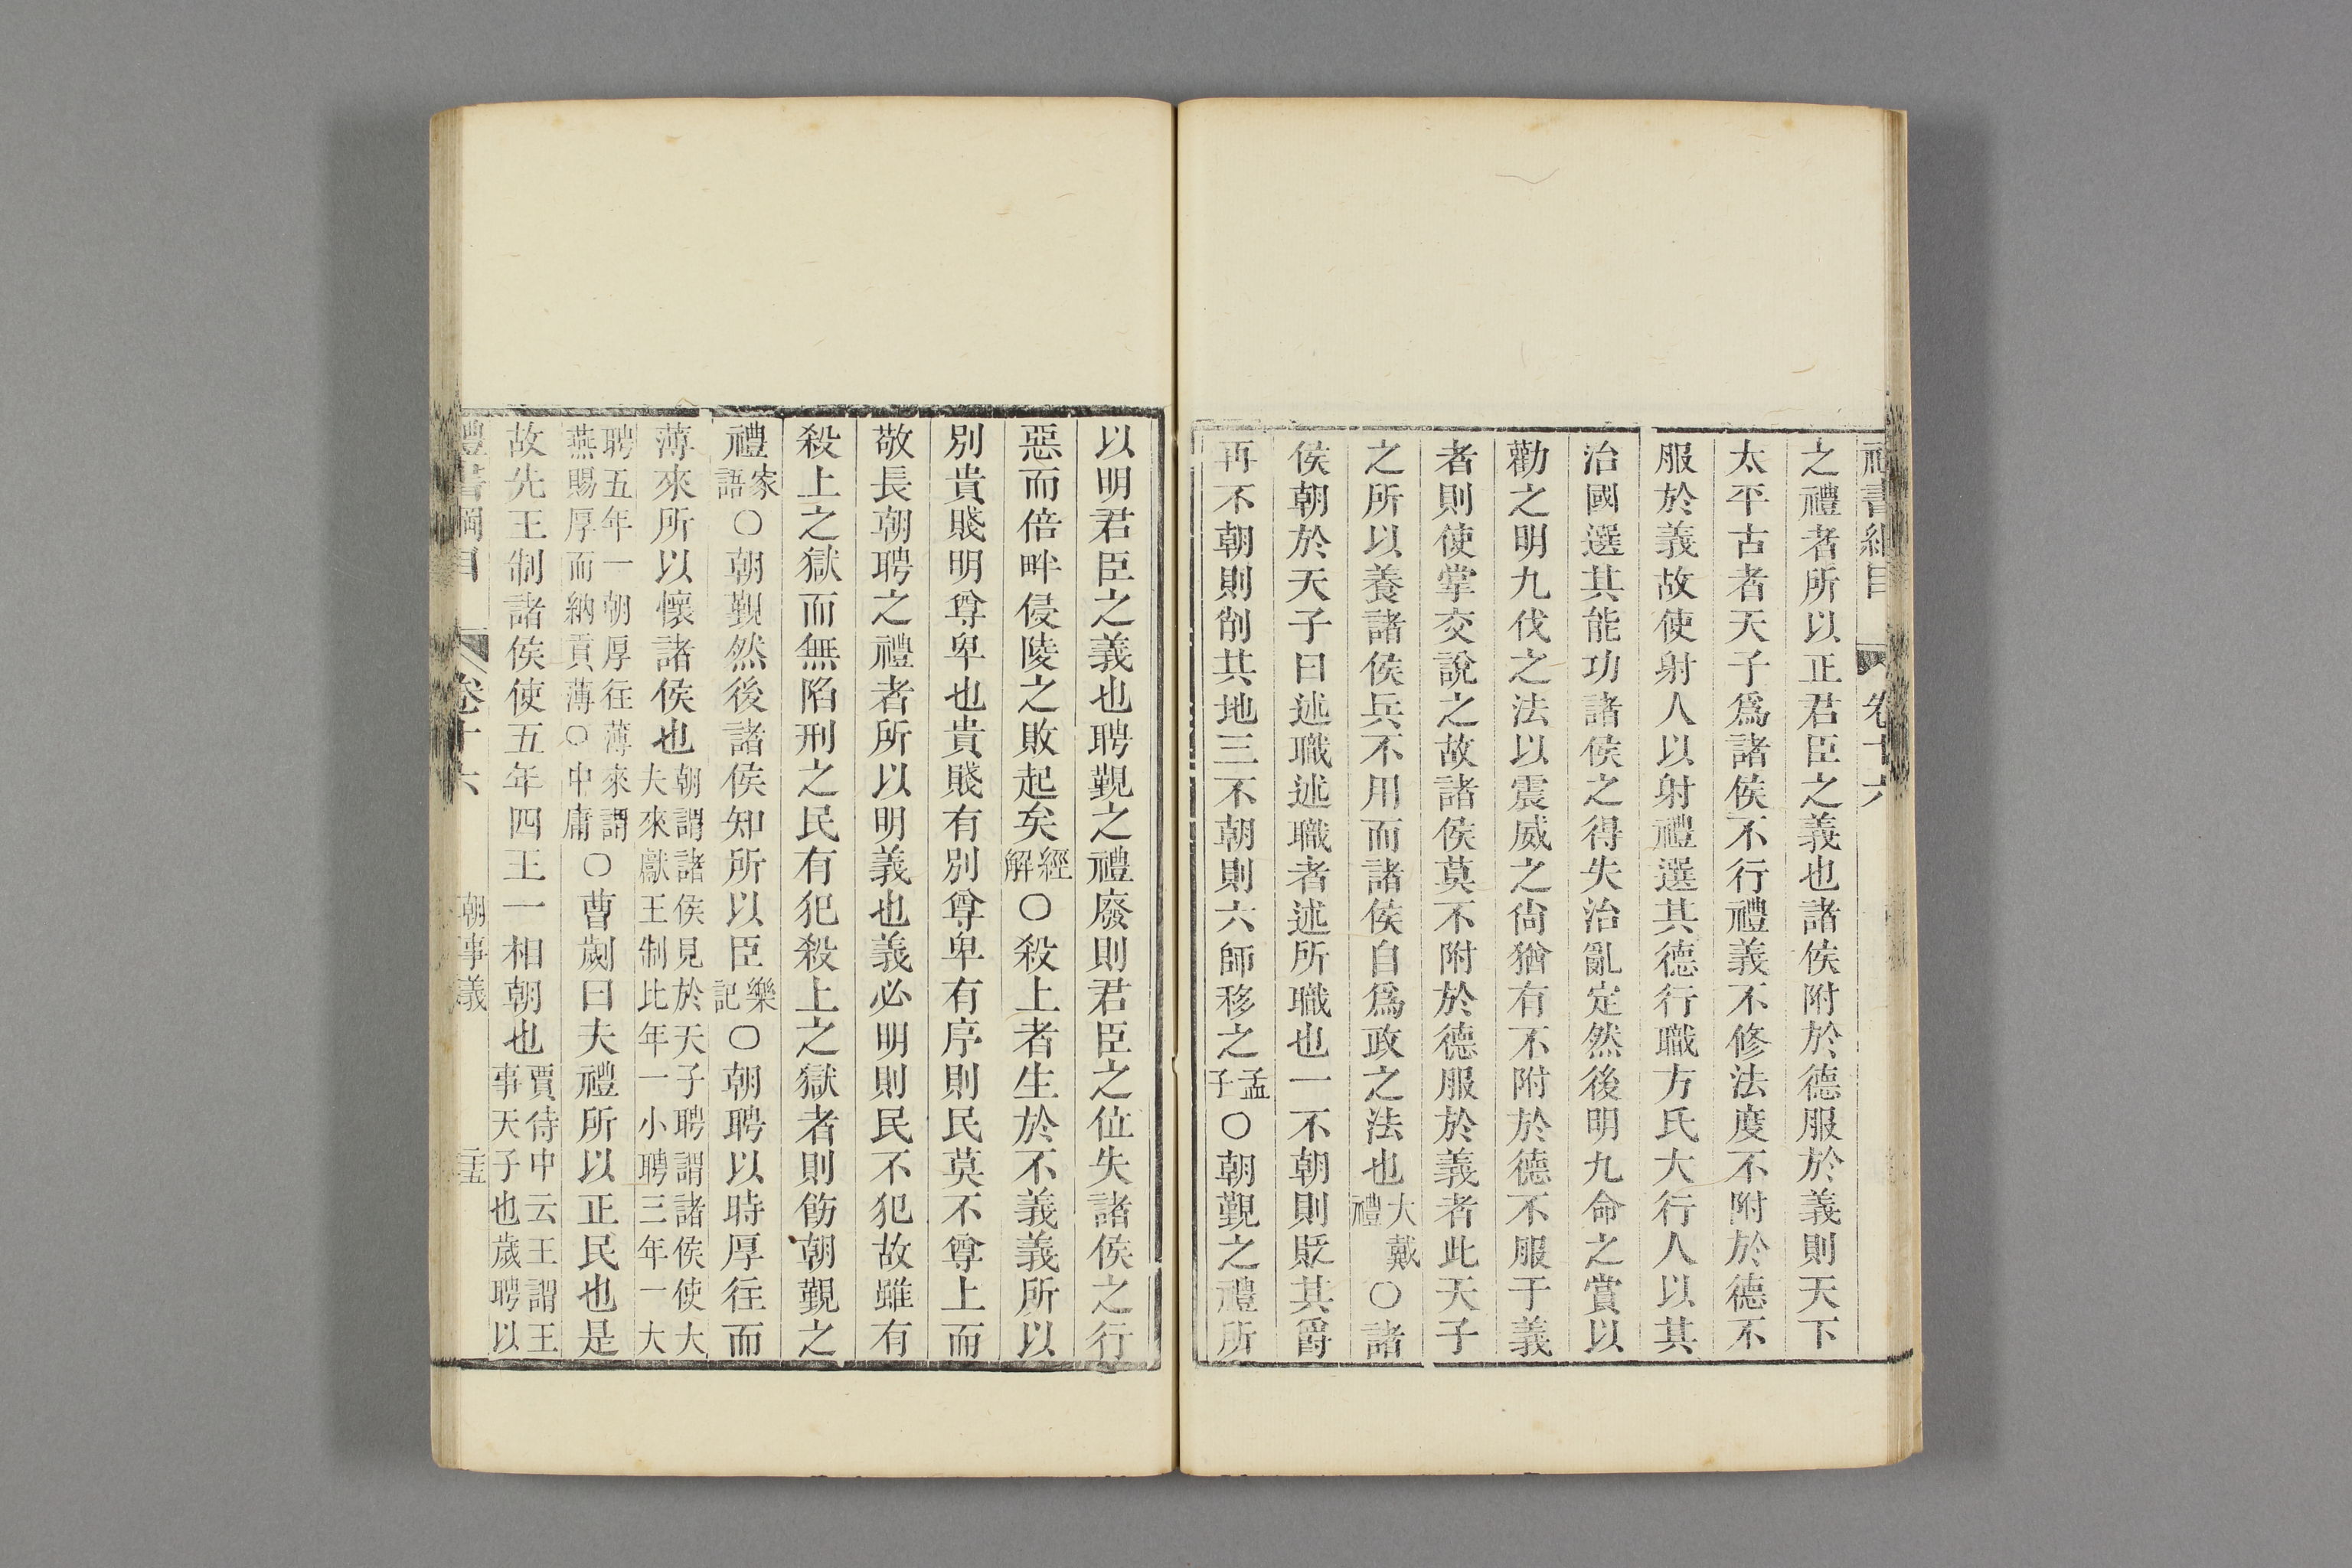 禮書綱目 卷十六
之禮者所以正君臣之義也諸侯附於德服於義則天下
太平古者天子爲諸侯不行禮義不修法度不附於德不
服於義故使射人以射禮選其德行職方氏大行人以其
治國選其能功諸侯之得失治亂定然後明九命之賞以
勸之明九伐之法以震威之尙猶有不附於德不服于義
者則使掌交說之故諸侯莫不附於德服於義者此天子
之所以養諸侯兵不用而諸侯自爲政之法也大戴禮○諸
侯朝於天子曰述職述職者述所職也一不朝則貶其爵
再不朝則削其地三不朝則六師移之孟子○朝覲之禮所
以明君臣之義也聘覲之禮廢則君臣之位失諸侯之行
惡而倍畔侵陵之敗起矣經解○殺上者生於不義義所以
別貴賤明尊卑也貴賤有別尊卑有序則民莫不尊上而
敬長朝聘之禮者所以明義也義必明則民不犯故雖有
殺上之獄而無陷刑之民有犯殺上之獄者則飭朝覲之
禮家語○朝覲然後諸侯知所以臣樂記○朝聘以時厚往而
薄來所以懷諸侯也朝謂諸侯見於天子聘謂諸侯使大
夫來獻王制比年一小聘三年一大
聘五年一朝厚往薄來謂
燕賜厚而納貢薄○中庸○曹劌曰夫禮所以正民也是
故先王制諸侯使五年四王一相朝也賈侍中云王謂王
事天子也歲聘以
禮書綱目 卷十六 朝事義 二五